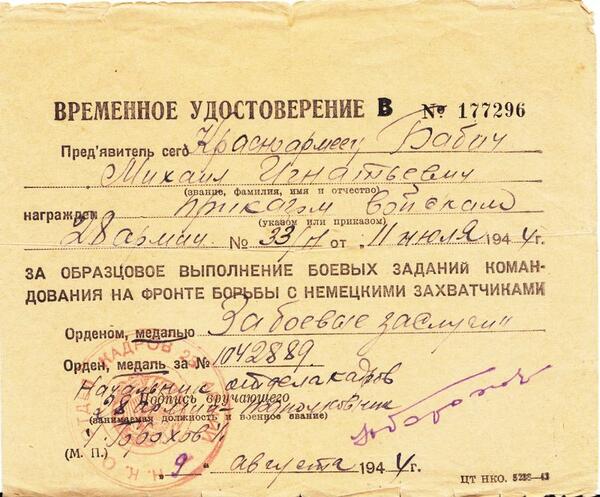 ВРЕМЕННОЕ УДОСТОВЕРЕНИЕ В № 177296
Пред'явитель сего Красноармеец Бабич
Михаил Игнатьевич
(звание, фамилия, имя и отчество)
награжден приказом войскам
(указом или приказом)
28 армии № 33/н от „11 июля 1944г.
ЗА ОБРАЗЦОВОЕ ВЫПОЛНЕНИЕ БОЕВЫХ ЗАДАНИЙ КОМАН-
ДОВАНИЯ НА ФРОНТЕ БОРЬБЫ С НЕМЕЦКИМИ ЗАХВАТЧИКАМИ
Орденом, медалью „За боевые заслуги"
Орден, медаль за № 1042889
Начальник отдела кадров
28 армии подполковник
Подпись вручающего
(занимаемая должность и военное звание)
(М. П.)
„9" августа 1944г.
ЦТ НКО. 5238—43
ОТДЕЛ КАДРОВ 28